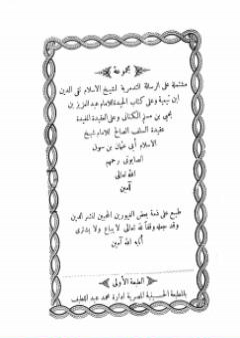 مجموعة
مشتملة على الرسالة التدمرية لشيخ الاسلام تقى الدين
ابن تيمية وعلى كتاب الحيدة للامام عبد العزيز بن
يحيى بن مسلم الكنانى وعلى العقيدة المفيدة
عقيدة السلف الصالح للامام شيخ
الاسلام أبى عثمان بن
الصابونى رحمهم
الله تعالى
آمين
طبع على نمة بعض الغيورين المحبين لنشر الدين
وقد جعله وقفا لله تعالى لا يباع ولا يشترى
أثابه الله آمين
الطبعة الأولى
بالمطبعة الحسينية المصرية ادارة محمد عبد اللطيف